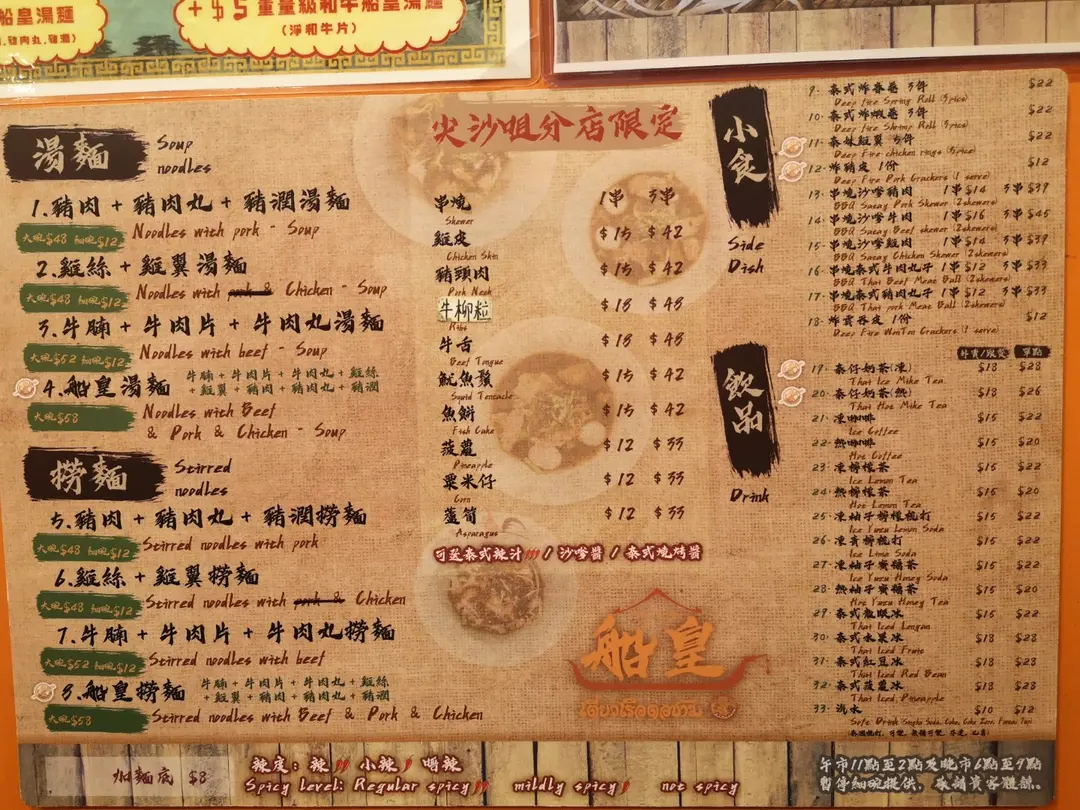 船皇湯麵
+$5 重量級和牛船皇湯麵
(淨和牛片)
湯麵
Soup
noodles
1.豬肉 + 豬肉丸 + 豬潤湯麵
大碗$48 細碗$12
Noodles with pork - Soup
2.雞絲 + 雞翼湯麵
大碗$48 細碗$12
Noodles with pork & Chicken - Soup
3.牛腩 + 牛肉片 + 牛肉丸湯麵
大碗$52 細碗$12
Noodles with beef - Soup
4.船皇湯麵
牛腩 + 牛肉片 + 牛肉丸 + 雞絲
+ 雞翼 + 豬肉 + 豬肉丸 + 豬潤
大碗$58
Noodles with Beef
& Pork & Chicken - Soup
撈麵
Stirred
noodles
5.豬肉 + 豬肉丸 + 豬潤撈麵
大碗$48 細碗$12
Stirred noodles with pork
6.雞絲 + 雞翼撈麵
大碗$48 細碗$12
Stirred noodles with pork & Chicken
7.牛腩 + 牛肉片 + 牛肉丸撈麵
大碗$52 細碗$12
Stirred noodles with beef
8.船皇撈麵
牛腩 + 牛肉片 + 牛肉丸 + 雞絲
+ 雞翼 + 豬肉 + 豬肉丸 + 豬潤
大碗$58
Stirred noodles with Beef & Pork & Chicken
尖沙咀分店限定
串燒 1串 3串
Skewer
雞皮 $15 $42
Chicken Skin
豬頸肉 $15 $42
Pork Neck
牛柳粒 $18 $48
Ribs
牛舌 $18 $48
Beef Tongue
魷魚鬚 $15 $42
Squid Tentacle
魚餅 $15 $42
Fish Cake
菠蘿 $12 $33
Pineapple
粟米仔 $12 $33
Corn
蘆筍 $12 $33
Asparagus
可送泰式辣汁 / 沙嗲醬 / 泰式燒烤醬
船皇
小食
Side
Dish
9. 泰式炸春卷 3件 $22
Deep fire Spring Roll (3pics)
10. 泰式炸蝦卷 3件 $22
Deep fire Shrimp Roll (3pics)
11. 泰妹雞翼 5件 $22
Deep Fire chicken rings (5pics)
12. 炸豬皮 1份 $12
Deep Fire Pork Crackers (1 serve)
13. 串燒沙嗲豬肉 1串$14 3串$39
BBQ Satay Pork Skewer (2skewers)
14. 串燒沙嗲牛肉 1串$16 3串$45
BBQ Satay Beef skewer (2skewers)
15. 串燒沙嗲雞肉 1串$14 3串$39
BBQ Satay Chicken Skewer (2skewers)
16. 串燒泰式牛肉丸子 1串$12 3串$33
BBQ Thai Beef Meat Ball (2skewers)
17. 串燒泰式豬肉丸子 1串$12 3串$33
BBQ Thai pork Meat Ball (2skewers)
18. 炸雲吞皮 1份 $12
Deep Fire WonTon Crackers (1 serve)
飲品
Drink
外賣/跟餐 單點
19. 泰仔奶茶(凍) $18 $28
Thai Ice Milk Tea
20. 泰仔奶茶(熱) $18 $26
Thai Hot Milke Tea
21. 凍咖啡 $15 $22
Ice Coffee
22. 熱咖啡 $15 $20
Hot Coffee
23. 凍檸檬茶 $15 $22
Ice Lemon Tea
24. 熱檸檬茶 $15 $20
Hot Lemon Tea
25. 凍柚子檸檬梳打 $15 $22
Ice Yuzu Lemon Soda
26. 凍青檸梳打 $15 $22
Ice Lime Soda
27. 凍柚子蜜糖茶 $15 $22
Ice Yuzu Honey Soda
28. 熱柚子蜜糖茶 $15 $20
Hot Yuzu Honey Tea
29. 泰式龍眼冰 $15 $22
Thai Iced Longan
30. 泰式水果冰 $18 $28
Thai Iced Fruit
31. 泰式紅豆冰 $18 $28
Thai Iced Red Bean
32. 泰式菠蘿冰 $18 $28
Thai Iced Pineapple
33. 汽水 $10 $12
加麵底 $8
辣度: 辣 小辣 唔辣
Spicy Level: Regular spicy mildly spicy not spicy
午市11點至2點及晚市6點至9點
暫停細碗提供, 敬請貴客體諒。